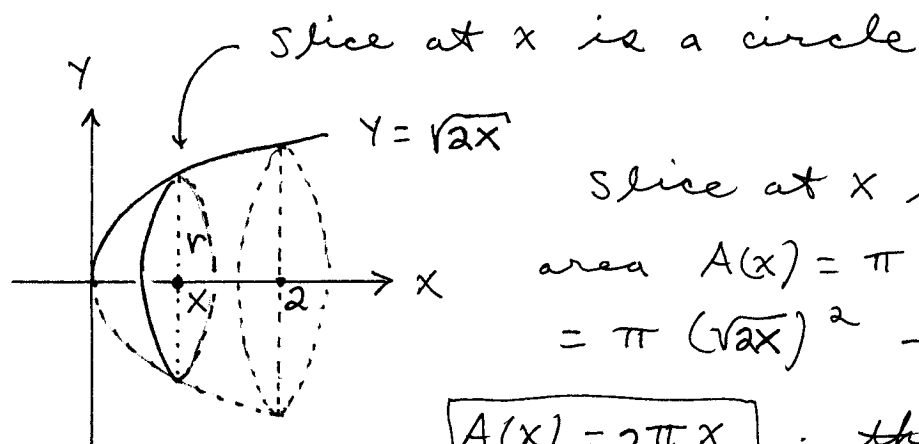 slice at x is a circle
Y
Y = √2x
slice at x
r
area A(x) = π
X
x
2
= π (√2x)²
A(x) = 2πx ; th